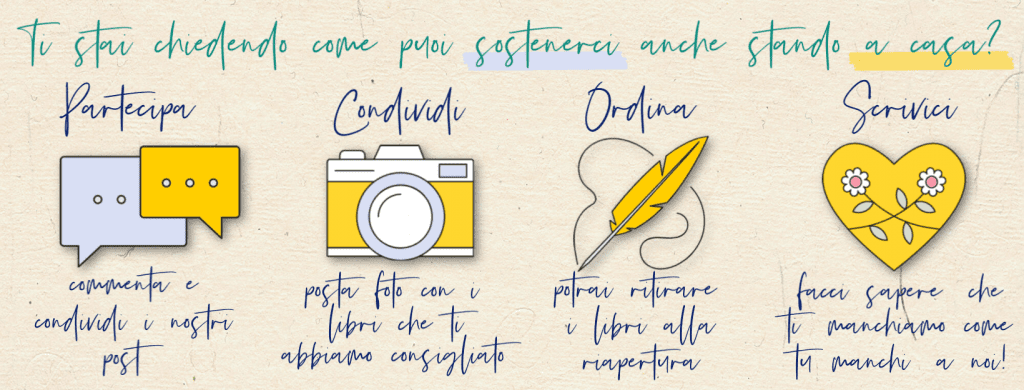 Ti stai chiedendo come puoi sostenerci anche stando a casa?
Partecipa
commenta e
condividi i nostri
post
Condividi
posta foto con i
libri che ti
abbiamo consigliato
Ordina
potrai ritirare
i libri alla
riapertura
Scrivici
facci sapere che
ti manchiamo come
tu manchi a noi!